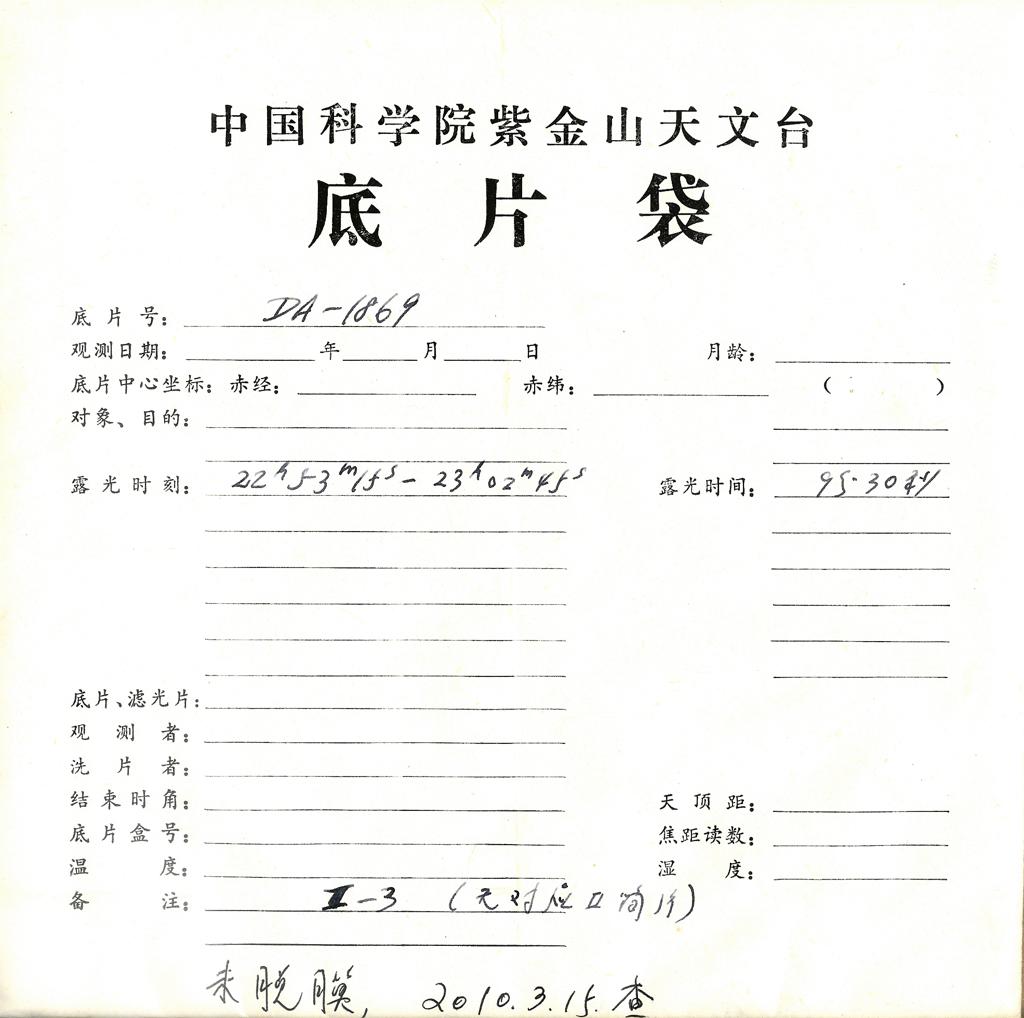 中国科学院紫金山天文台
底片袋
底片号: DA-1869
观测日期: 年 月 日 月龄:
底片中心坐标: 赤经: 赤纬: ( )
对象、目的:
露光时刻: 22h53m15s - 23h02m45s 露光时间: 95.30秒
底片、滤光片:
观测者:
洗片者:
结束时角: 天顶距:
底片盒号: 焦距读数:
温度: 湿度:
备注: I-3 (无对应II 片)
未脱膜, 2010.3.15.查